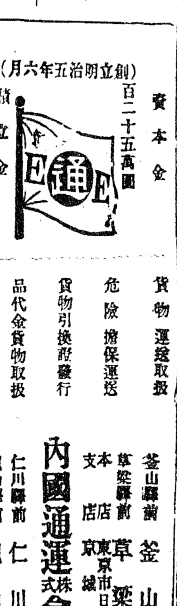 (創立明治五年六月)
資本金
百二十五萬圓
E通E
立金
貨物運送取扱
危險擔保運送
貨物引換證發行
品代金貨物取扱
釜山驛前 釜山
草梁驛前 草梁
本店 東京市日
支店 京城
內國通運株式
仁川驛前 仁川